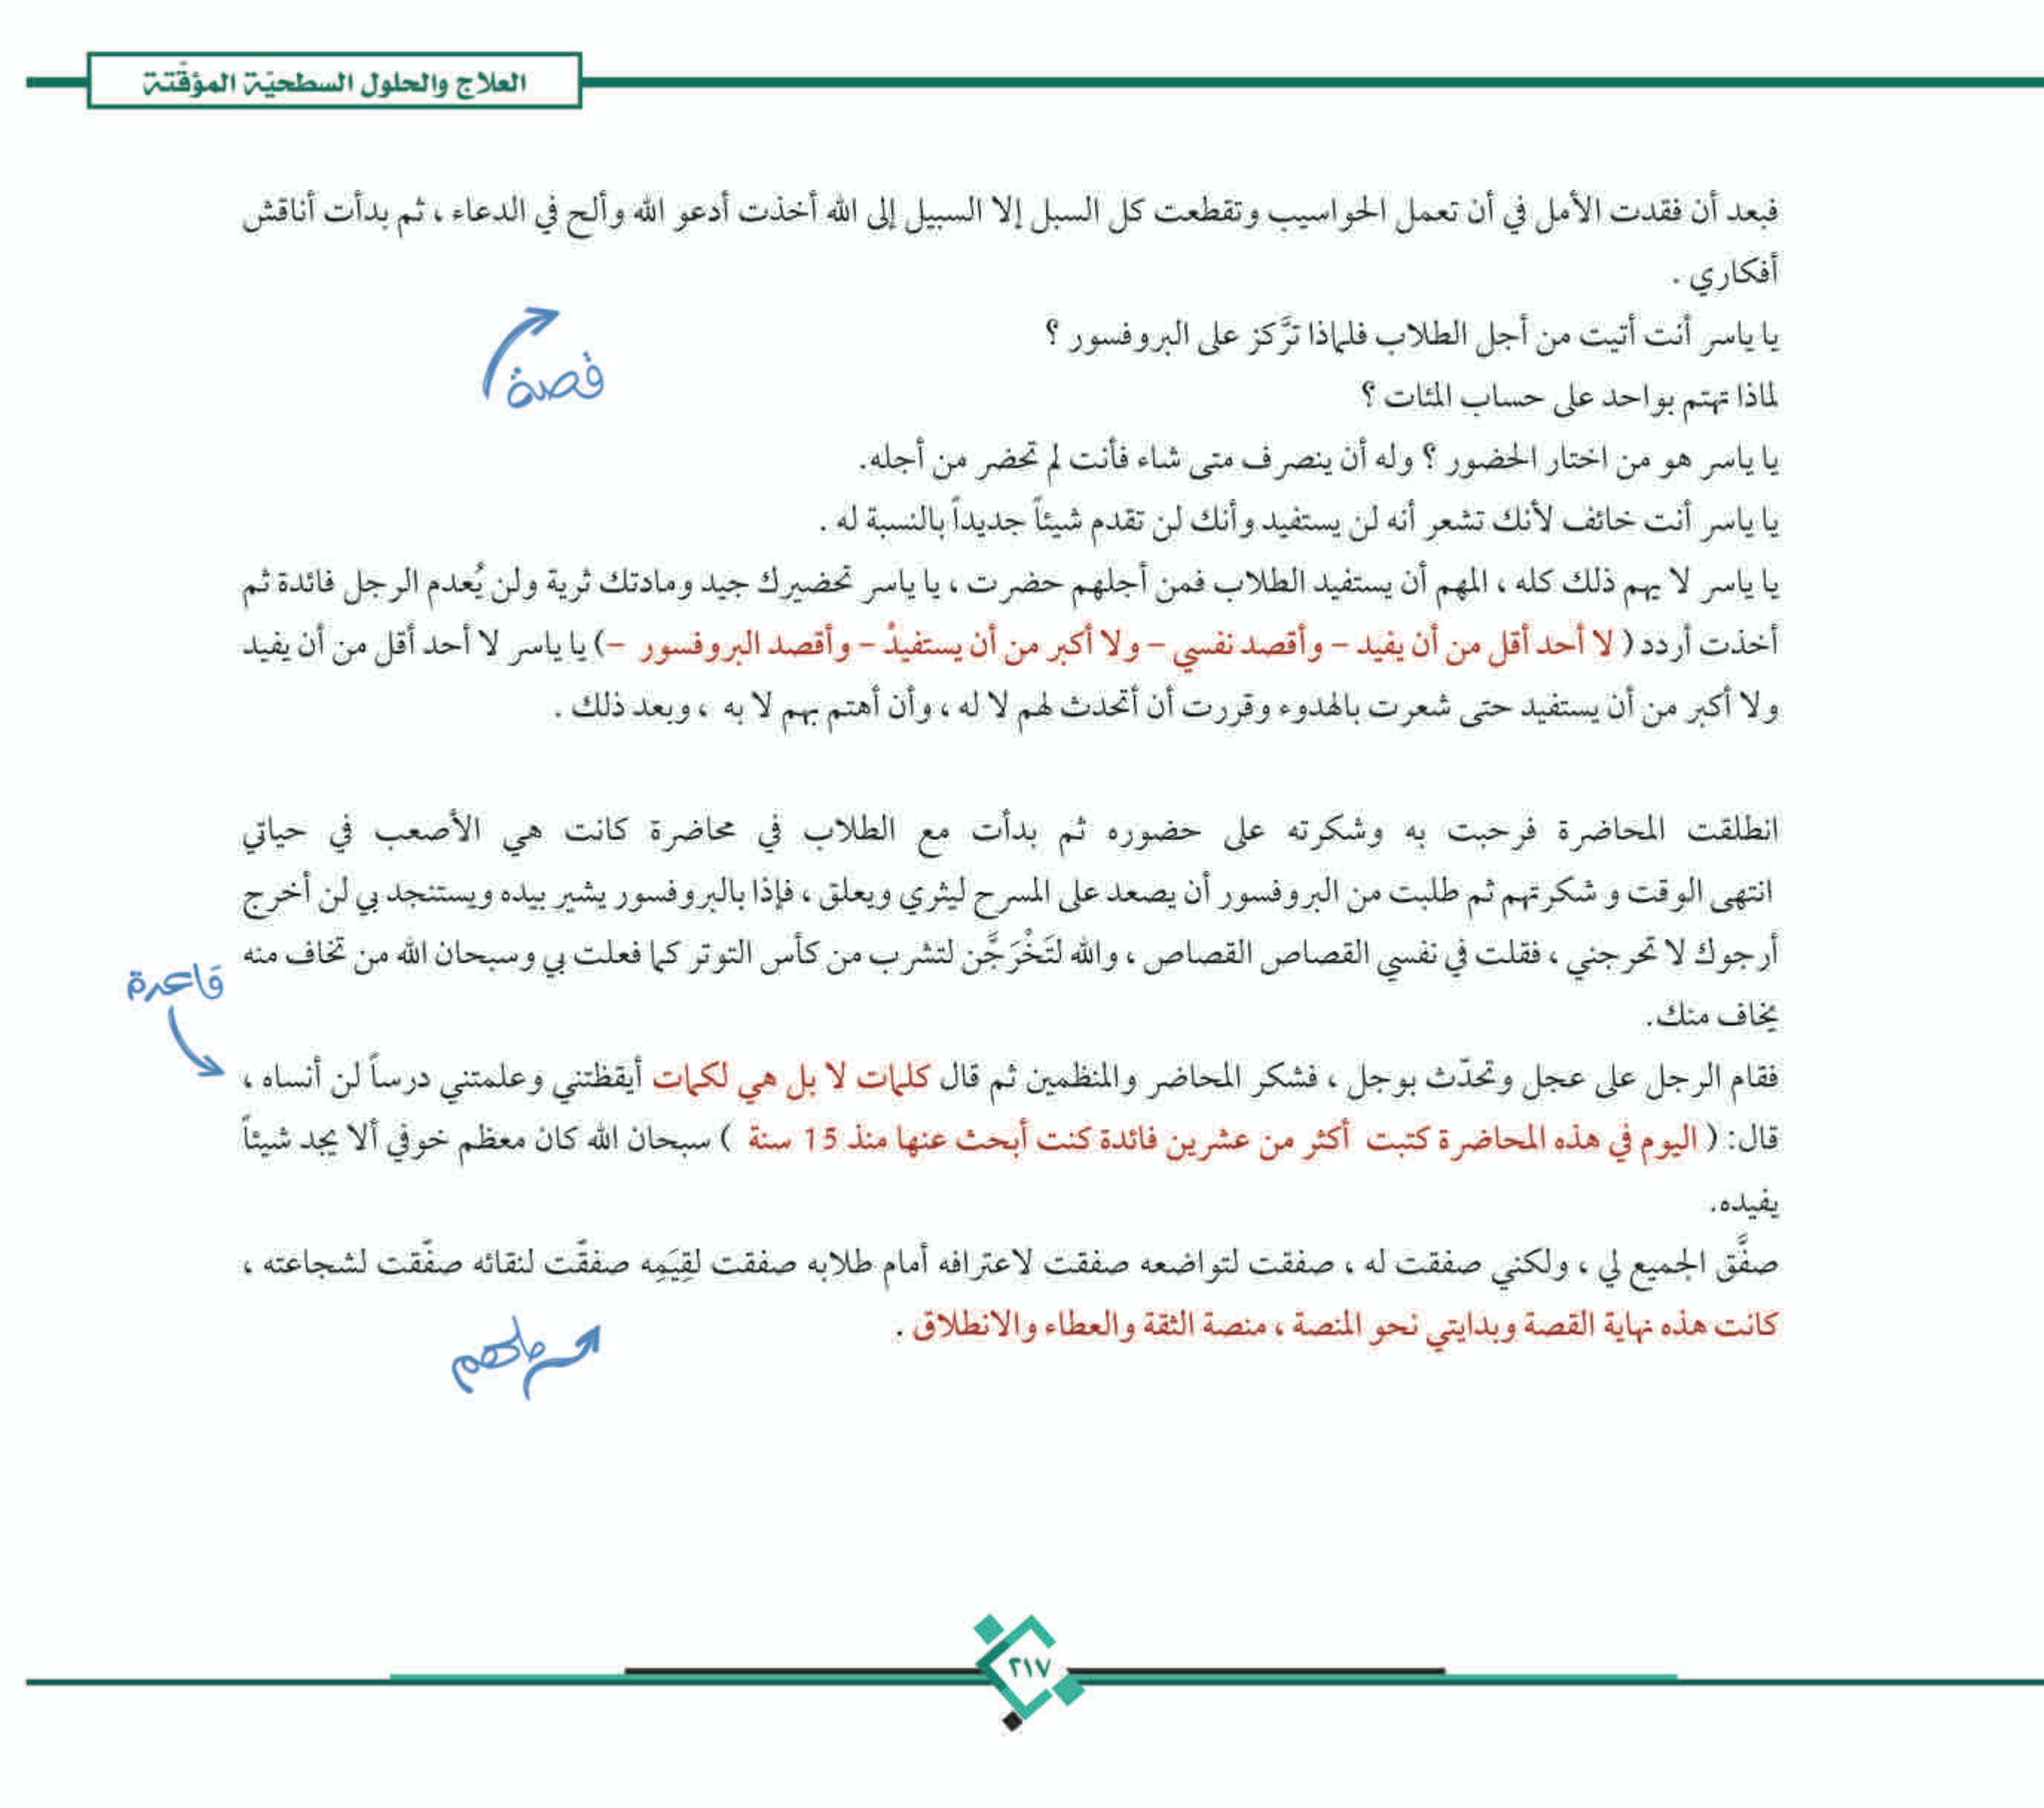 العلاج والحلول السطحيّة المؤقّتة
فبعد أن فقدت الأمل في أن تعمل الحواسيب وتقطعت كل السبل إلا السبيل إلى الله أخذت أدعو الله وألح في الدعاء ، ثم بدأت أناقش
أفكاري .
يا ياسر أنت أتيت من أجل الطلاب فلماذا تركَّز على البروفسور ؟
قصة
لماذا تهتم بواحد على حساب المئات ؟
يا ياسر هو من اختار الحضور ؟ وله أن ينصرف متى شاء فأنت لم تحضر من أجله.
يا ياسر أنت خائف لأنك تشعر أنه لن يستفيد وأنك لن تقدم شيئاً جديداً بالنسبة له .
يا ياسر لا يهم ذلك كله ، المهم أن يستفيد الطلاب فمن أجلهم حضرت ، يا ياسر تحضيرك جيد ومادتك ثرية ولن يُعدم الرجل فائدة ثم
أخذت أردد ( لا أحد أقل من أن يفيد – وأقصد نفسي – ولا أكبر من أن يستفيدْ – وأقصد البروفسور –) يا ياسر لا أحد أقل من أن يفيد
ولا أكبر من أن يستفيد حتى شعرت بالهدوء وقررت أن أتحدث لهم لا له ، وأن أهتم بهم لا به ، وبعد ذلك .
انطلقت المحاضرة فرحبت به وشكرته على حضوره ثم بدأت مع الطلاب في محاضرة كانت هي الأصعب في حياتي
انتهى الوقت و شكرتهم ثم طلبت من البروفسور أن يصعد على المسرح ليثري ويعلق ، فإذا بالبروفسور يشير بيده ويستنجد بي لن أخرج
أرجوك لا تحرجني ، فقلت في نفسي القصاص القصاص ، والله لتَخْرَجَّن لتشرب من كأس التوتر كما فعلت بي وسبحان الله من تخاف منه
قاعدة
يخاف منك.
فقام الرجل على عجل وتحدّث بوجل ، فشكر المحاضر والمنظمين ثم قال كلمات لا بل هي لكمات أيقظتني وعلمتني درساً لن أنساه ،
قال: ( اليوم في هذه المحاضرة كتبت أكثر من عشرين فائدة كنت أبحث عنها منذ 15 سنة ) سبحان الله كان معظم خوفي ألا يجد شيئاً
يفيده.
صفَّق الجميع لي ، ولكني صفقت له ، صفقت لتواضعه صفقت لاعترافه أمام طلابه صفقت لقِيَمِه صفقّت لنقائه صفّقت لشجاعته ،
كانت هذه نهاية القصة وبدايتي نحو المنصة ، منصة الثقة والعطاء والانطلاق .
٢١٧